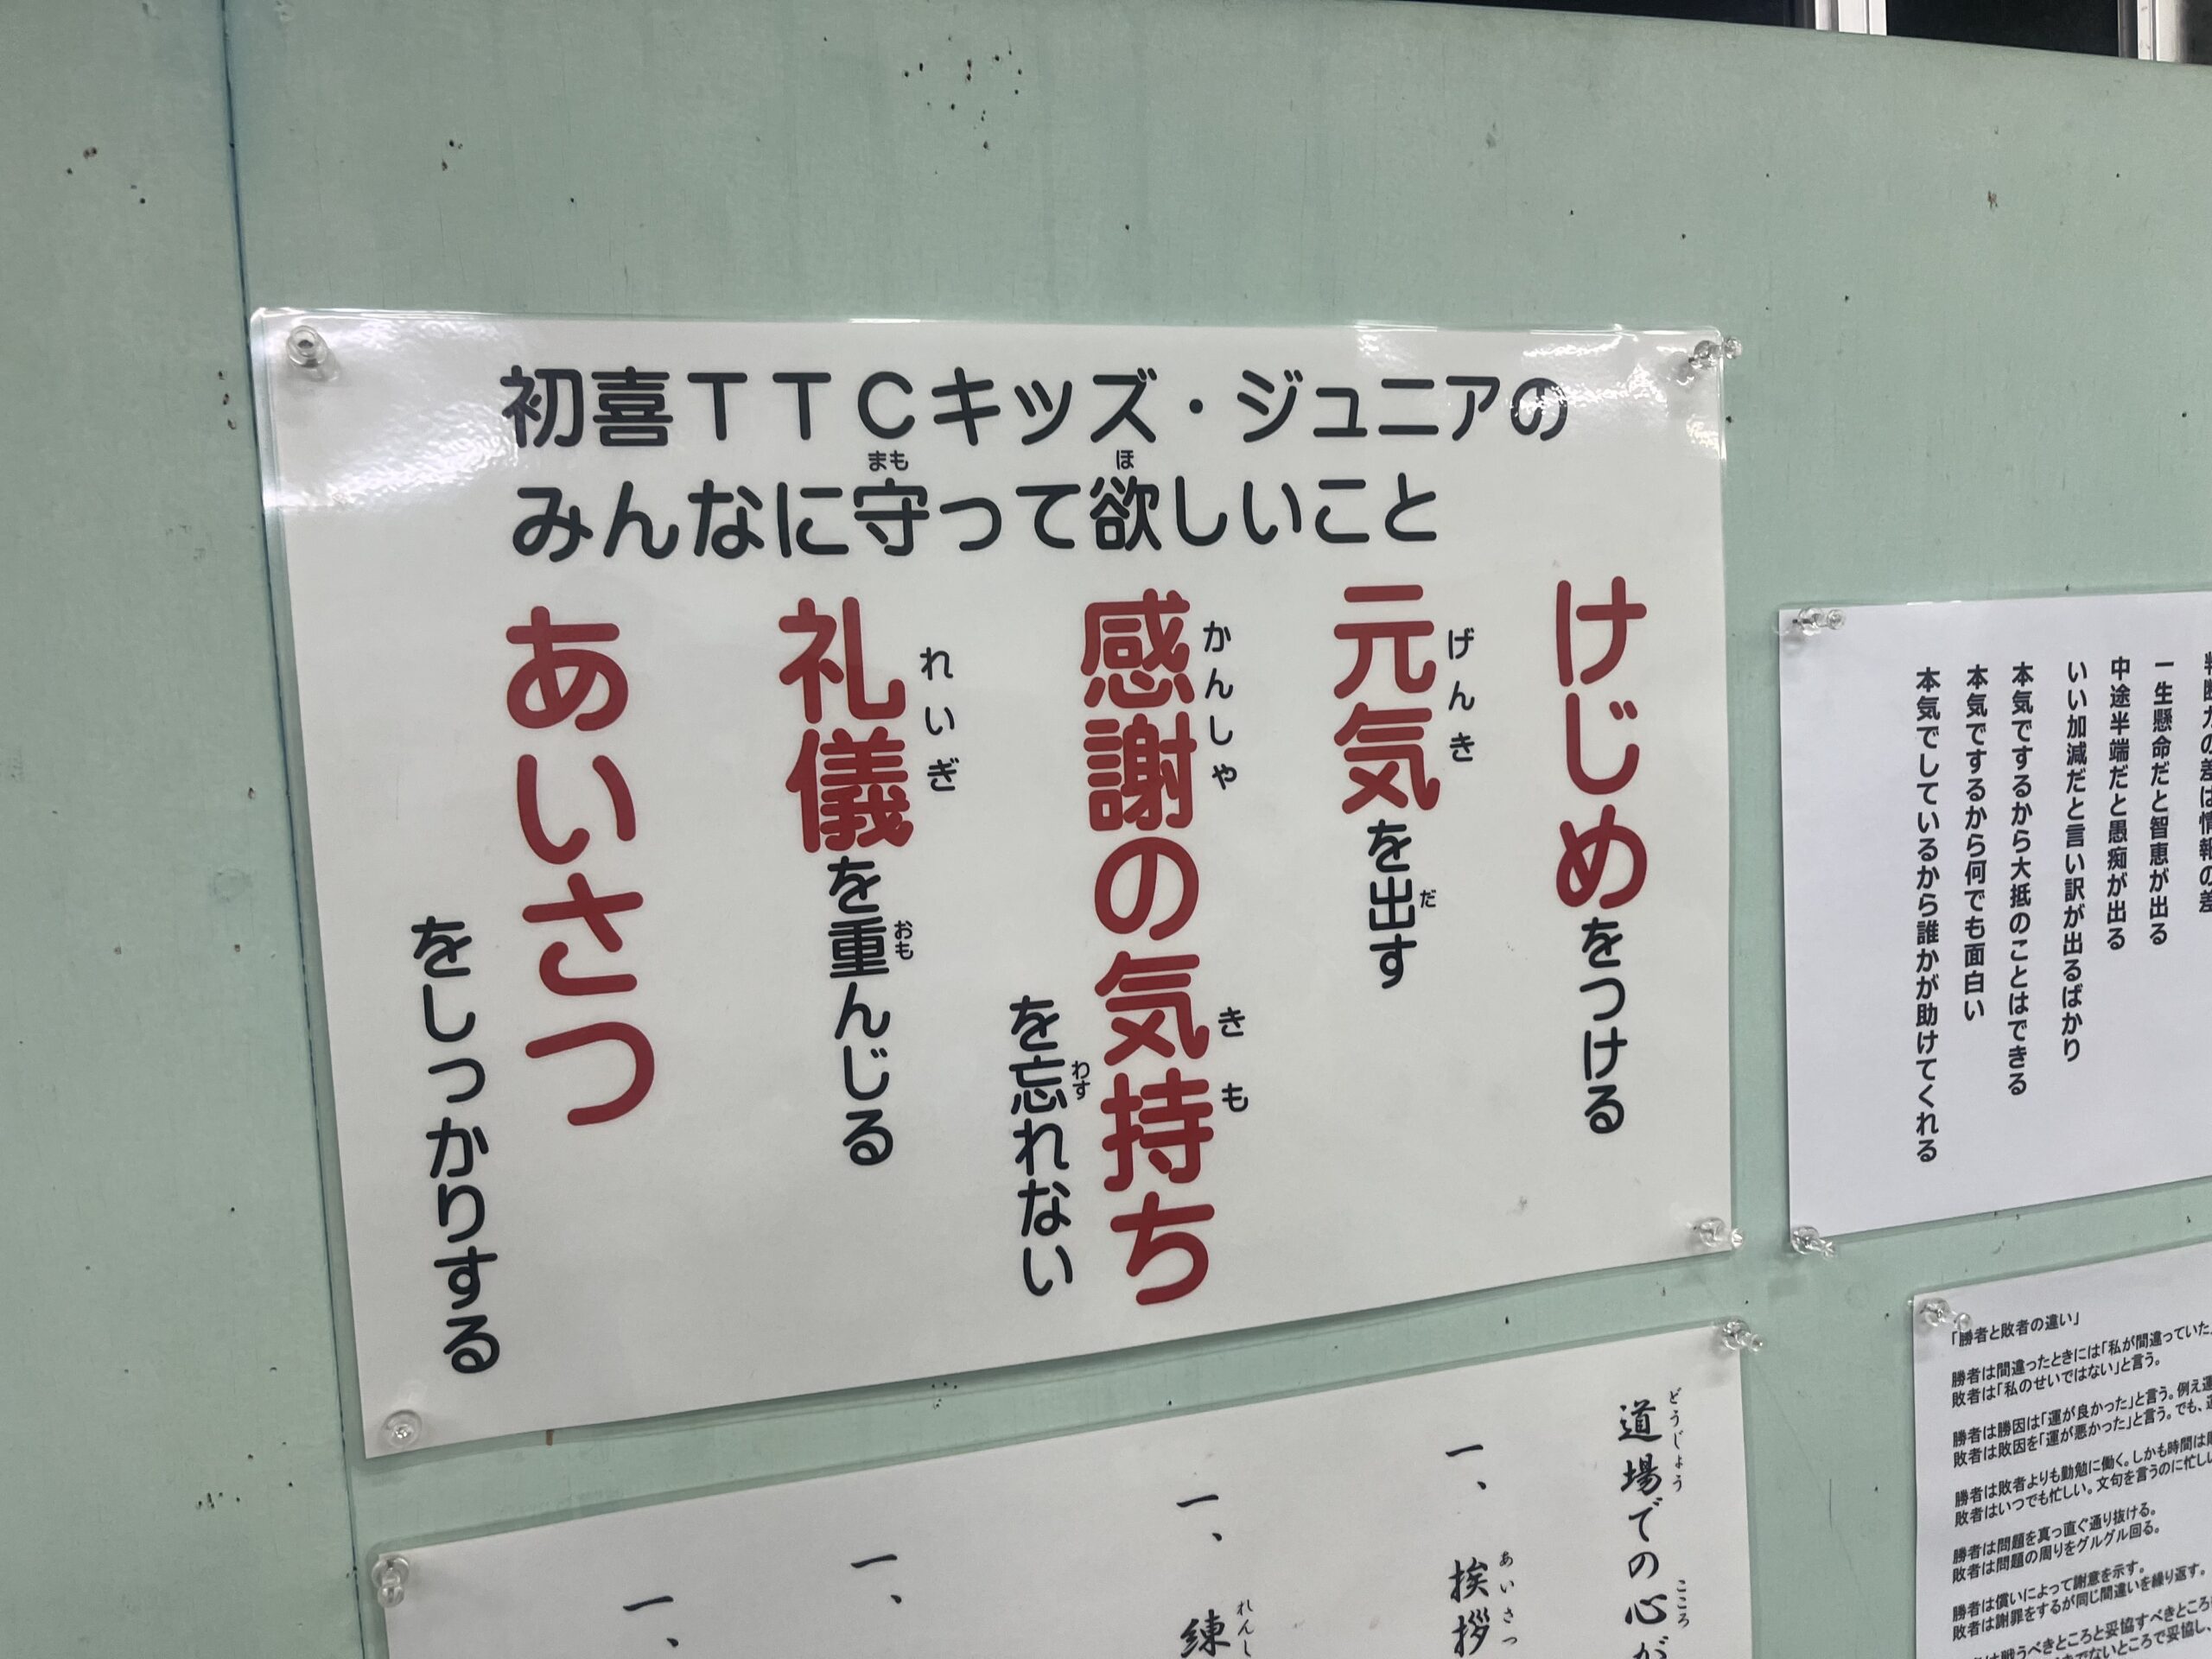 初喜ＴＴＣキッズ・ジュニアの
みんなに守って欲しいこと
まも
ほ
けじめをつける
元気を出す
げんき
だ
感謝の気持ち
かんしゃ
きも
を忘れない
わす
礼儀を重んじる
れいぎ
おも
あいさつ
をしっかりする
の差は情報の差
一生懸命だと智恵が出る
中途半端だと愚痴が出る
いい加減だと言い訳が出るばかり
本気でするから大抵のことはできる
本気でするから何でも面白い
本気でしているから誰かが助けてくれる
道場での心が
どうじょう
こころ
一、挨拶
あいさつ
一、練
れんし
一、
一、
「勝者と敗者の違い」
勝者は間違ったときには「私が間違っていた
敗者は「私のせいではない」と言う。
勝者は勝因は「運が良かった」と言う。例え運
敗者は敗因を「運が悪かった」と言う。でも、
勝者は敗者よりも勤勉に働く。しかも時間は
敗者はいつでも忙しい。文句を言うのに忙し
勝者は問題を真っ直ぐ通り抜ける。
敗者は問題の周りをグルグル回る。
勝者は償いによって謝意を示す。
敗者は謝罪をするが同じ間違いを繰り返す。
は戦うべきところと妥協すべきところ
でないところで妥協し、